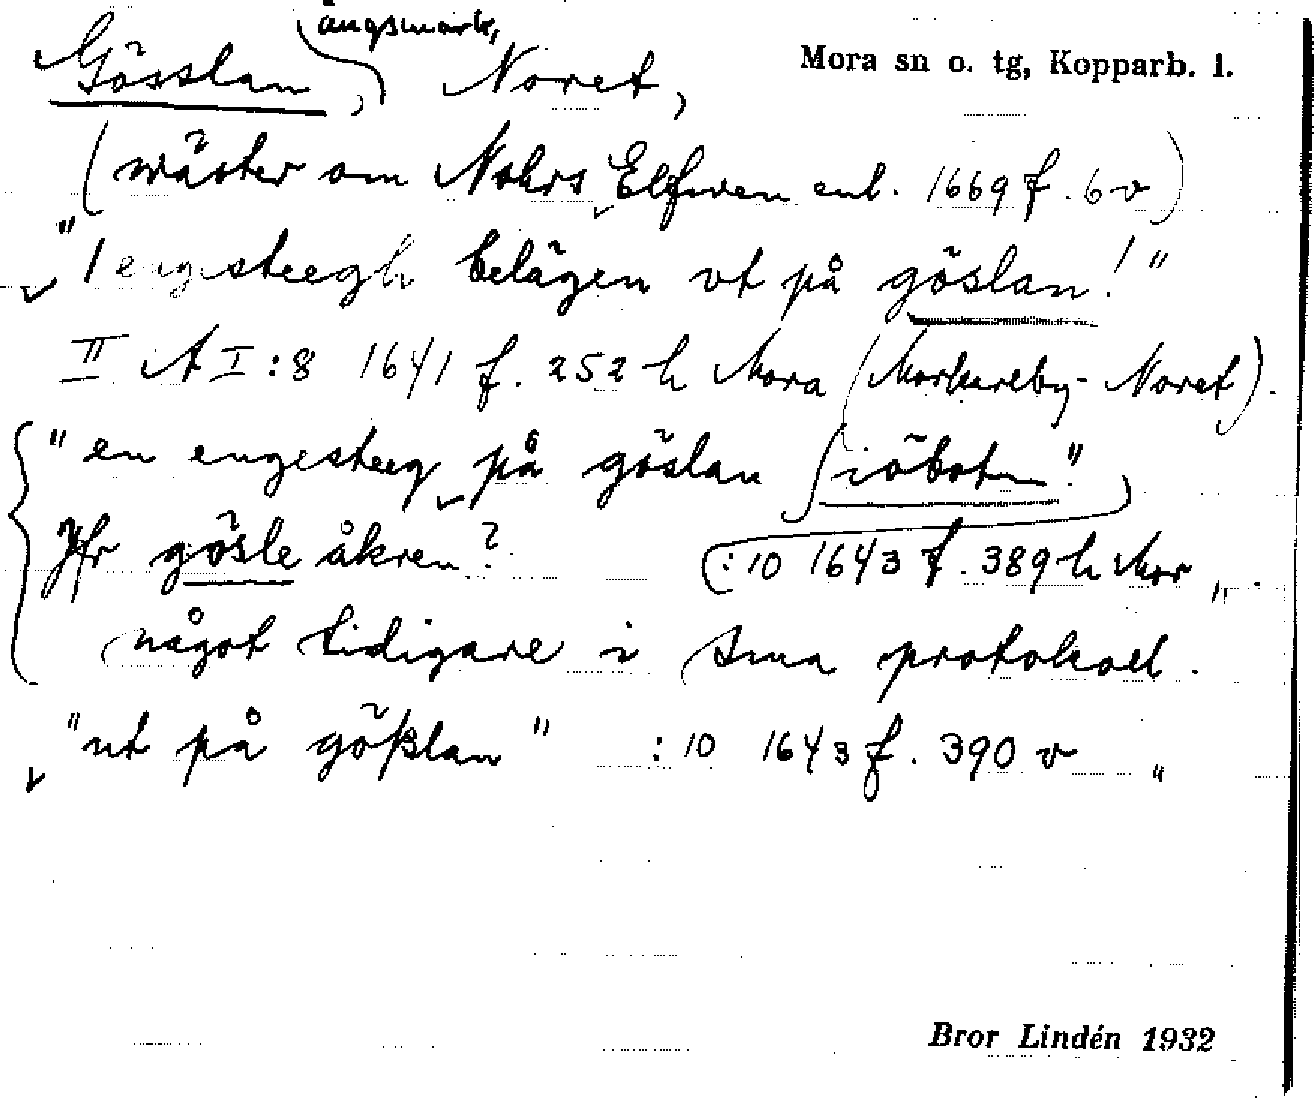 ängsmark,
Gösslan, Noret, Mora sn o. tg, Kopparb. l.
(wäster om Nohrs Elfwen enl. 1669 f. 6 v)
"1 engesteegh belägen vt på göslan!"
II A I:8 1641 f. 252 h Mora (Morkarleby- Noret).
"en engesteeg på göslan siöbotn"
Jfr gösle åkren? :10 1643 f. 389 h Mor „.
något tidigare i sma protokoll.
"ut på gößlan" :10 1643 f. 390 v „
Bror Lindén 1932